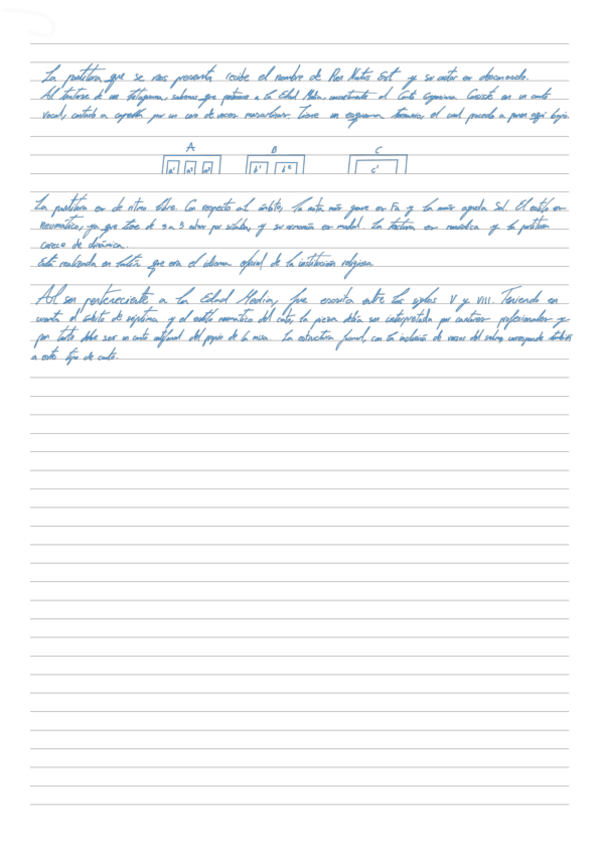 La partitura que se nos presenta recibe el nombre de Puer Natus Est y su autor es desconocido.
Al tratarse de un tetragrama, sabemos que pertenece a la Edad Media, concretamente al Canto Gregoriano. Consiste en un canto
vocal, cantado a capella por un coro de voces masculinas. Tiene un esquema el cual procedo a poner aquí bajo.
A B C
a¹ a² a³ b¹ b² c¹
La partitura es de ritmo libre. Con respecto al ámbito, la nota más grave es Fa y la más aguda Sol. El estilo es
neumático, ya que tiene de 2 a 3 notas por sílaba, y su armonía es modal. La textura es monódica y la partitura
carece de dinámica.
Está realizada en latín que era el idioma oficial de la institución religiosa.
Al ser perteneciente a la Edad Media, fue escrita entre los siglos V y VIII. Teniendo en
cuenta el ámbito de séptima y el estilo neumático del canto, la pieza debía ser interpretada por cantores profesionales y
por tanto debe ser un canto antifonal del propio de la misa. La estructura formal, con la inclusión de versos del salmo corresponde
a este tipo de canto.